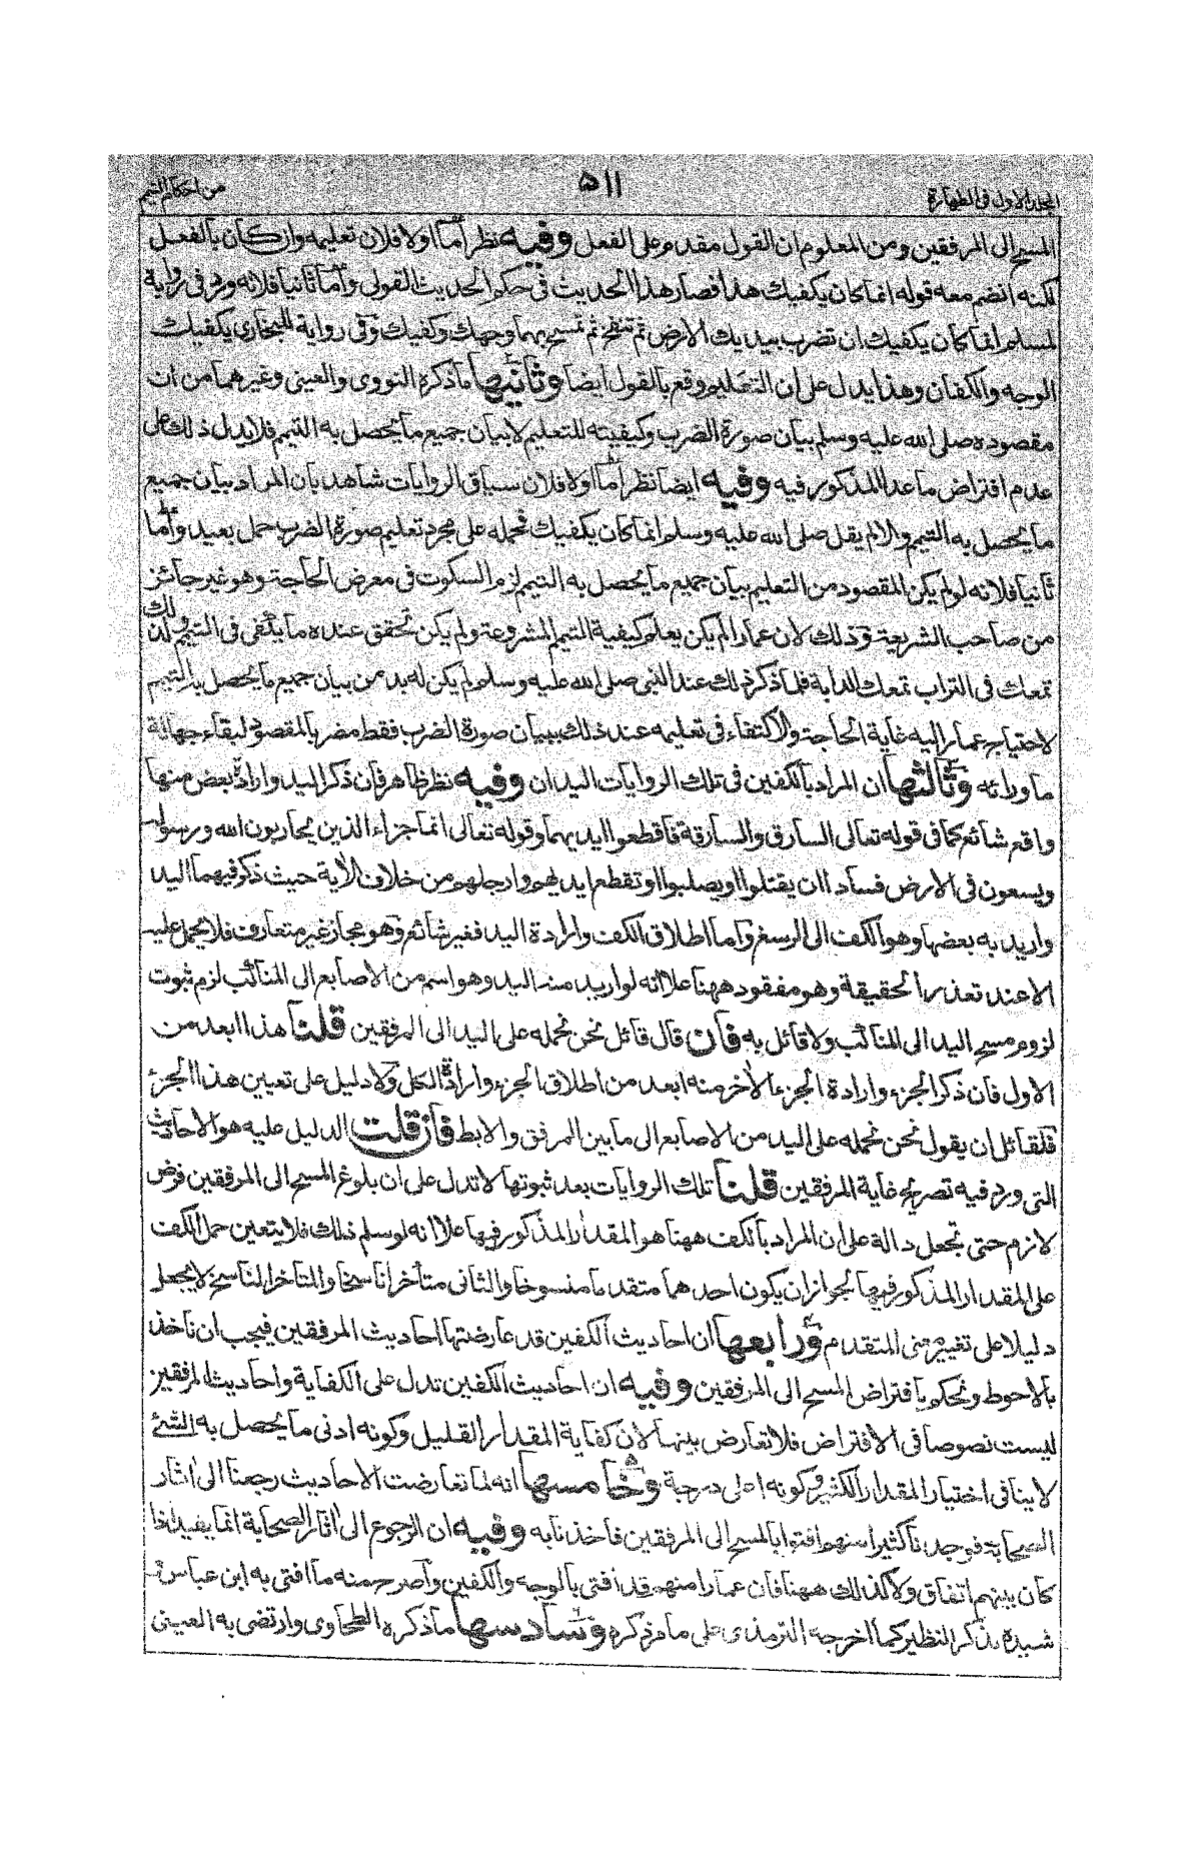 المجلد الاول فى الطهارة
٥١١
من احكام التيمم
المسح الى المرفقين ومن المعلوم ان القول مقدم على الفعل وفيه نظر اما اولا فلان تعليمه وان كان بالفعل
لكنه انضم معه قوله انما كان يكفيك هذا فصار هذا الحديث فى حكم الحديث القولى واما ثانيا فلانه ورد فى رواية
لمسلم انما كان يكفيك ان تضرب بيديك الارض ثم تنفخ ثم تمسح بهما وجهك وكفيك وفى رواية للبخارى يكفيك
الوجه والكفان وهذا يدل على ان التعليم وقع بالقول ايضا وثانيها ما ذكره النووى والعينى وغيرهما من ان
مقصوده صلى الله عليه وسلم بيان صورة الضرب وكيفيته للتعليم لا بيان جميع ما يحصل به التيمم فلا يدل ذلك على
عدم افتراض ما عدا المذكور فيه وفيه ايضا نظر اما اولا فلان سياق الروايات شاهد بان المراد بيان جميع
ما يحصل به التيمم والا لم يقل صلى الله عليه وسلم انما كان يكفيك فحمله على مجرد تعليم صورة الضرب حمل بعيد واما
ثانيا فلانه لو لم يكن المقصود من التعليم بيان جميع ما يحصل به التيمم لزم السكوت فى معرض الحاجة وهو غير جائز
من صاحب الشريعة وذلك لان عمارا لم يكن يعلم كيفية التيمم المشروعة ولم يكن تحقق عنده ما يكفى فى التيمم ولذلك
تمعك فى التراب تمعك الدابة فلما ذكر ذلك عند النبى صلى الله عليه وسلم لم يكن له بد من بيان جميع ما يحصل به التيمم
لاحتياج عمار اليه غاية الحاجة والاكتفاء فى تعليمه عند ذلك ببيان صورة الضرب فقط مضر بالمقصود لبقاء جهالة
ما وراءه وثالثها ان المراد بالكفين فى تلك الروايات اليدان وفيه نظر ظاهر فان ذكر اليد وارادة بعض منها
واقع شائع كما فى قوله تعالى السارق والسارقة فاقطعوا ايديهما وقوله تعالى انما جزاء الذين يحاربون الله ورسوله
ويسعون فى الارض فسادا ان يقتلوا او يصلبوا او تقطع ايديهم وارجلهم من خلاف الاية حيث ذكر فيهما اليد
واريد به بعضها وهو الكف الى الرسغ واما اطلاق الكف وارادة اليد فغير شائع وهو مجاز غير متعارف فلا يحمل عليه
الا عند تعذر الحقيقة وهو مفقود ههنا علا انه لو اريد منه اليد وهو اسم من الاصابع الى المناكب لزم ثبوت
لزوم مسح اليد الى المناكب ولا قائل به فان قال قائل نحن نحمله على اليد الى المرفقين قلنا هذا ابعد من
الاول فان ذكر الجزء وارادة الجزء الاخر منه ابعد من اطلاق الجزء وارادة الكل ولا دليل على تعيين هذا الجزء
فلقائل ان يقول نحن نحمله على اليد من الاصابع الى ما بين المرفق والابط فان قلت الدليل عليه هو الاحاديث
التى ورد فيه تصريح غاية المرفقين قلنا تلك الروايات بعد ثبوتها لا تدل على ان بلوغ المسح الى المرفقين فرض
لازم حتى تجعل دالة على ان المراد بالكف ههنا هو المقدار المذكور فيها علا انه لو سلم ذلك فلا يتعين حمل الكف
على المقدار المذكور فيها لجواز ان يكون احدهما متقدما منسوخا والثانى متأخرا ناسخا والمتاخر الناسخ لا يجعل
دليلا على تغيير معنى المتقدم ورابعها ان احاديث الكفين قد عارضتها احاديث المرفقين فيجب ان ناخذ
بالاحوط ونحكم بافتراض المسح الى المرفقين وفيه ان احاديث الكفين تدل على الكفاية واحاديث المرفقين
ليست نصوصا فى الافتراض فلا تعارض بينها لان كفاية المقدار القليل وكونه ادنى ما يحصل به الشئ
لا ينافى اختيار المقدار الكثير وكونه اعلى درجة وخامسها انه لما تعارضت الاحاديث رجعنا الى اثار
الصحابة فوجدنا كثيرا منهم افتوا بالمسح الى المرفقين فاخذنا به وفيه ان الرجوع الى اثار الصحابة انما يفيد اذا
كان بينهم اتفاق ولا كذلك ههنا فان عمارا منهم قد افتى بالوجه والكفين واصرح منه ما افتى به ابن عباس
بذكر النظير كما اخرجه الترمذى على ما مر ذكره وسادسها ما ذكره الطحاوى وارتضى به العينى